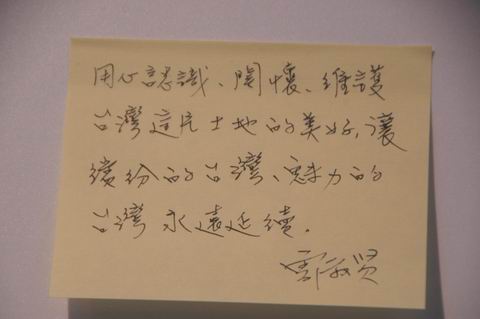 用心認識、關懷、維護
台灣這片土地的美好,讓
繽紛的台灣、魅力的
台灣永遠延續.